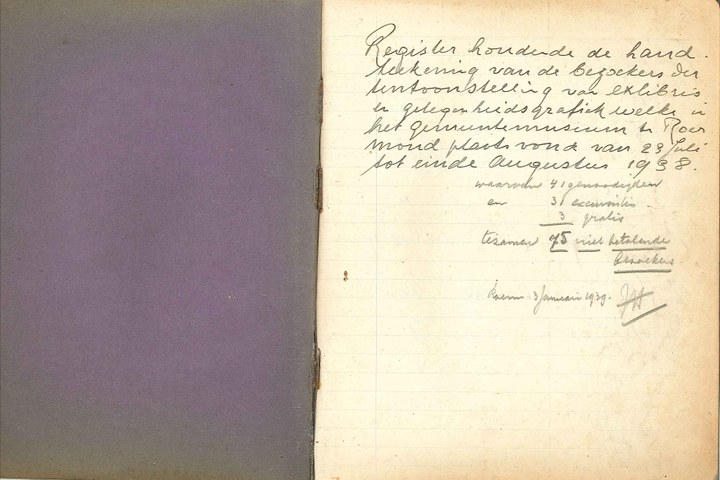 Register houdende de hand-
teekening van de bezoekers der
tentoonstelling van exlibris
en gelegenheidsgrafiek welke in
het gemeentemuseum te Roer
mond plaats vond van 23 Juli
tot einde Augustus 1938.
waarvan 41 genoodigden
en 31
3 gratis
tezamen 75 niet betalende
bezoekers
Roerm 3 Januari 1939.